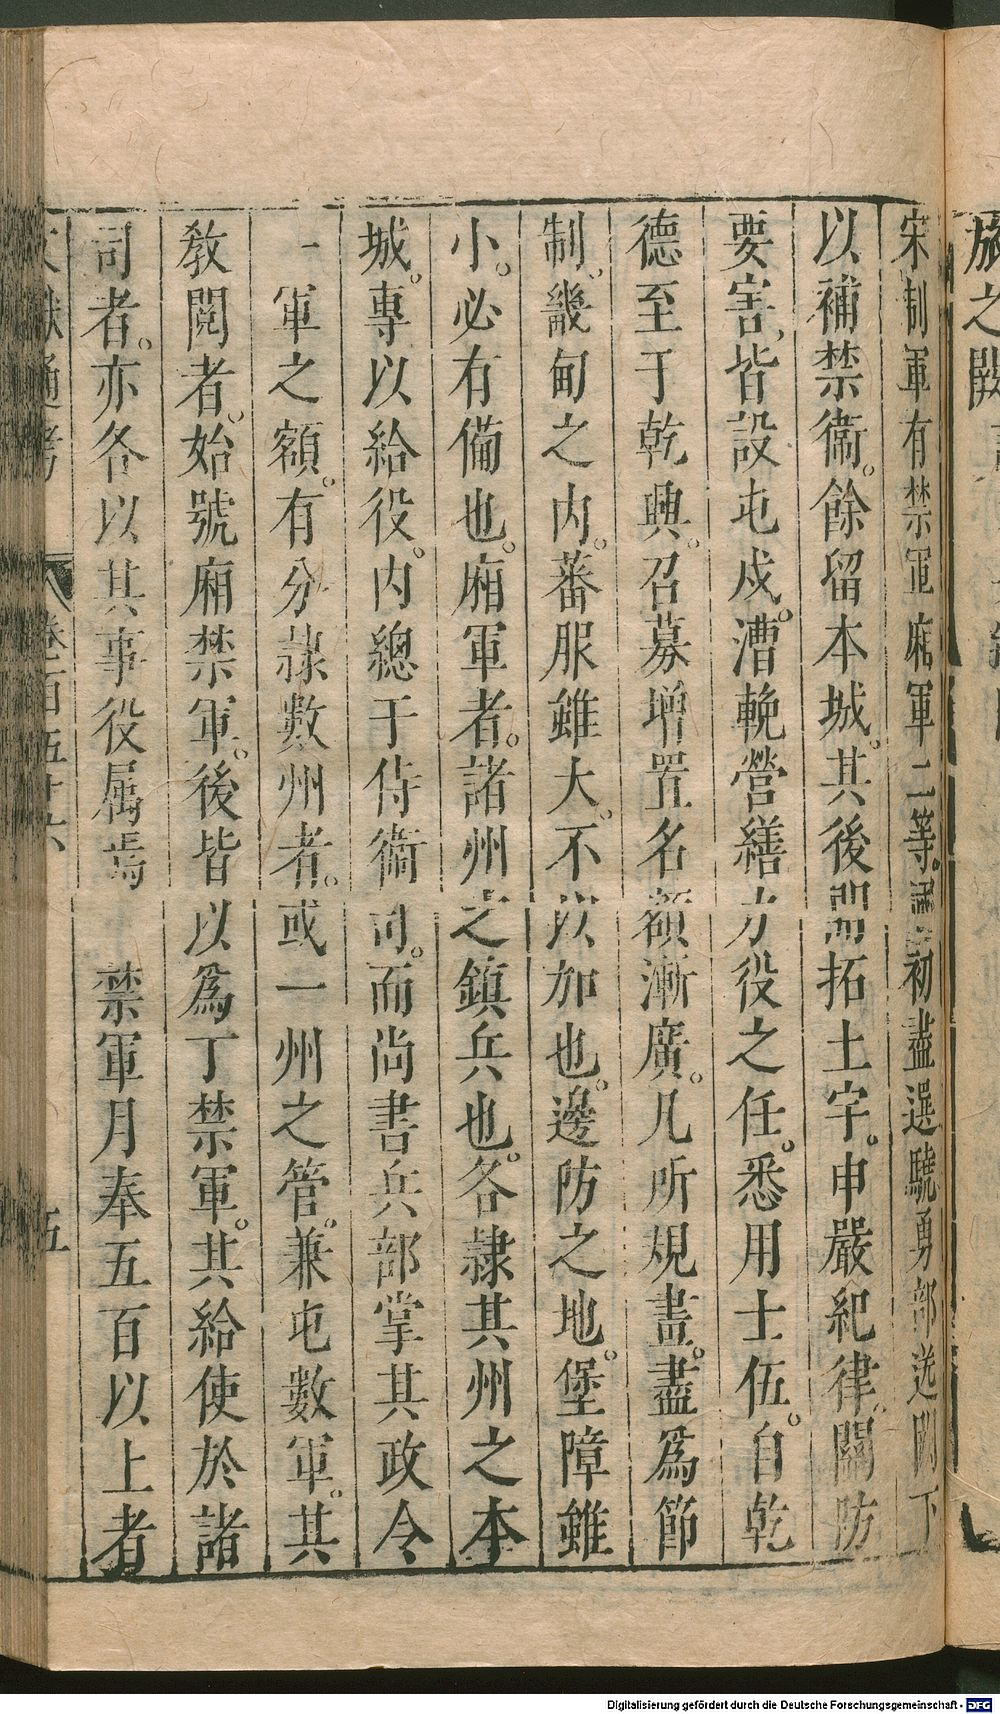 旅之闕
宋制軍有禁軍廂軍二等。國初盡選驍勇部送闕下
以補禁衞。餘留本城。其後開拓土宇。申嚴紀律。關防
要害。皆設屯戍。漕輓營繕力役之任。悉用士伍。自乾
德至于乾興。召募增置名額漸廣。凡所規畫。盡爲節
制。畿甸之内。蕃服雖大。不以加也。邊防之地。堡障雖
小。必有備也。廂軍者。諸州之鎮兵也。各隷其州之本
城。專以給役。内總于侍衞司。而尚書兵部掌其政令
一軍之額。有分隷數州者。或一州之管。兼屯數軍。其
敎閲者。始號廂禁軍。後皆以爲丁禁軍。其給使於諸
司者。亦各以其事役属焉　禁軍月奉五百以上者
文獻通考　卷一百五十六　五
Digitalisierung gefördert durch die Deutsche Forschungsgemeinschaft - DFG